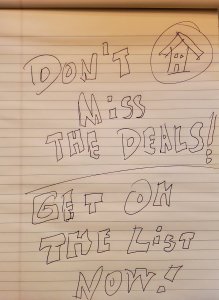 DON'T
MiSS
THE DEALS!
GET ON
THE LiST
NOW!